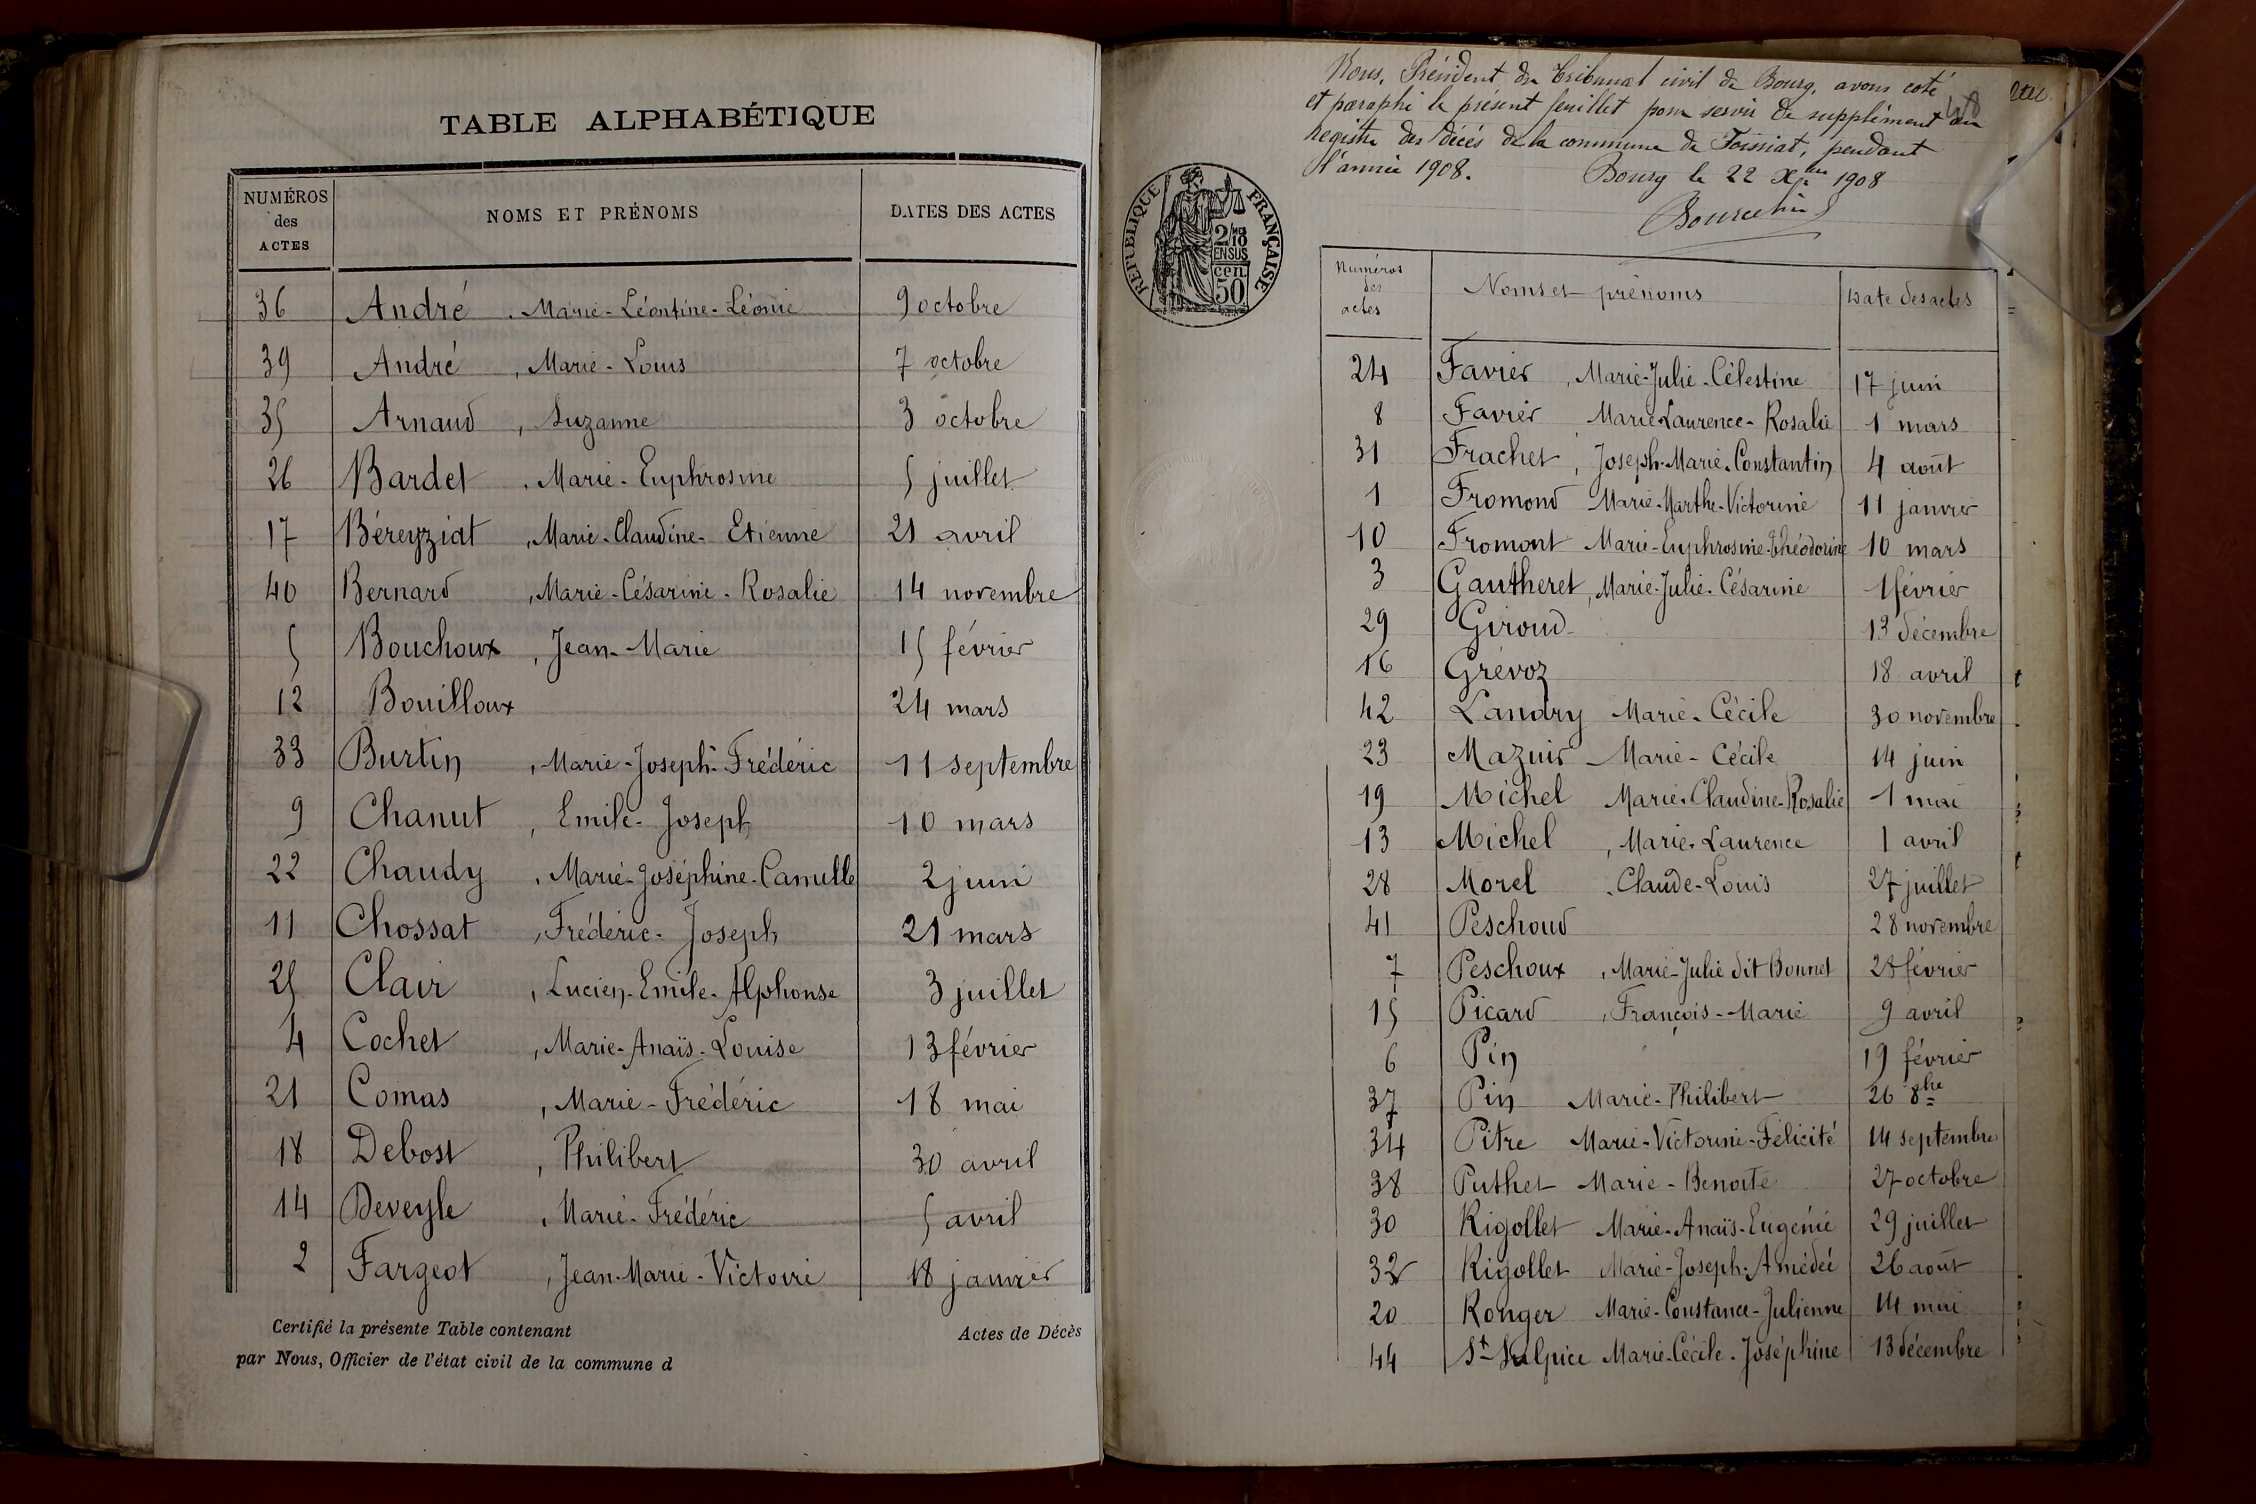 TABLE ALPHABÉTIQUE
NUMÉROS des ACTES NOMS ET PRÉNOMS DATES DES ACTES
36 André, Marie-Léontine-Léonie 9 octobre
39 André, Marie-Louis 7 octobre
35 Arnaud, Suzanne 3 octobre
26 Bardet, Marie-Euphrosine 5 juillet
17 Béreyziat, Marie-Claudine-Etienne 21 avril
40 Bernard, Marie-Césarine-Rosalie 14 novembre
5 Bouchoux, Jean-Marie 15 février
12 Bouilloux 24 mars
33 Burtin, Marie-Joseph-Frédéric 11 septembre
9 Chanut, Emile-Joseph 10 mars
22 Chaudy, Marie-Joséphine-Camille 2 juin
11 Chossat, Frédéric-Joseph 21 mars
25 Clair, Lucien-Emile-Alphonse 3 juillet
4 Cochet, Marie-Anaïs-Louise 13 février
21 Comas, Marie-Frédéric 18 mai
18 Debost, Philibert 30 avril
14 Deveyle, Marie-Frédéric 5 avril
2 Fargeot, Jean-Marie-Victoire 18 janvier
Certifié la présente Table contenant Actes de Décès
par Nous, Officier de l'état civil de la commune d
Nous, Président du Tribunal civil de Bourg, avons coté
et paraphé le présent feuillet pour servir de supplément au
registre des décès de la commune de Foissiat, pendant
l'année 1908. Bourg le 22 Xbre 1908
RÉPUBLIQUE FRANÇAISE
2/10
EN SUS
50 cen.
Numéros des actes Noms et prénoms Date des actes
24 Favier, Marie-Julie-Célestine 17 juin
8 Favier Marie-Laurence-Rosalie 1 mars
31 Frachet, Joseph-Marie-Constantin 4 août
1 Fromond Marie-Marthe-Victorine 11 janvier
10 Fromont Marie-Euphrosine-Théodorine 10 mars
3 Gautheret, Marie-Julie-Césarine 1 février
29 Giroud 13 décembre
16 Grévoz 18 avril
42 Landry Marie-Cécile 30 novembre
23 Mazuir Marie-Cécile 14 juin
19 Michel Marie-Claudine-Rosalie 1 mai
13 Michel, Marie-Laurence 1 avril
28 Morel, Claude-Louis 27 juillet
41 Peschoud 28 novembre
7 Peschoux, Marie-Julie dit Bonnet 28 février
15 Picard, François-Marie 9 avril
6 Pin 19 février
37 Pin Marie-Philibert 26 8bre
34 Pitre Marie-Victorine-Félicité 14 septembre
38 Puthet Marie-Benoite 27 octobre
30 Rigollet Marie-Anaïs-Eugénie 29 juillet
32 Rigollet Marie-Joseph-Amédée 26 août
20 Ronger Marie-Constance-Julienne 14 mai
44 St-Sulpice Marie-Cécile-Joséphine 13 décembre